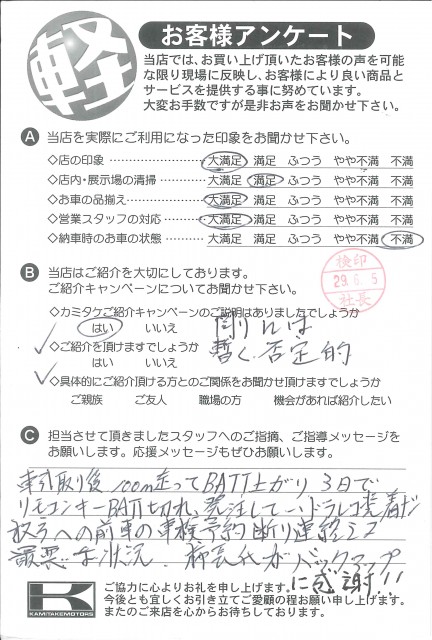 軽
お客様アンケート
当店では、お買い上げ頂いたお客様の声を可能
な限り現場に反映し、お客様により良い商品と
サービスを提供する事に努めています。
大変お手数ですが是非お声をお聞かせ下さい。
A 当店を実際にご利用になった印象をお聞かせ下さい。
◇店の印象 大満足 満足 ふつう やや不満 不満
◇店内・展示場の清掃 大満足 満足 ふつう やや不満 不満
◇お車の品揃え 大満足 満足 ふつう やや不満 不満
◇営業スタッフの対応 大満足 満足 ふつう やや不満 不満
◇納車時のお車の状態 大満足 満足 ふつう やや不満 不満
検印
29.6.5
社長
B 当店はご紹介を大切にしております。
ご紹介キャンペーンについてお聞かせ下さい。
◇カミタケご紹介キャンペーンのご説明はありましたでしょうか
はい いいえ
◇ご紹介を頂けますでしょうか
はい いいえ
暫く否定的
◇具体的にご紹介頂ける方とのご関係をお聞かせ頂けますでしょうか
ご親族 ご友人 職場の方 機会があれば紹介したい
C 担当させて頂きましたスタッフへのご指摘、ご指導メッセージを
お願いします。応援メッセージもぜひお願いします。
車引取り後 100m走ってBATT上がり 3日で
リモコンキーBATT切れ、発注して ドラレコ未着だ
前車の車検予約断り連絡ミス
最悪な状況 がバックアップ
に感謝!!
K
KAMITAKEMOTORS
ご協力に心よりお礼を申し上げます。
今後とも宜しくお引き立てご愛顧の程お願い申し上げます。
またのご来店を心からお待ちしております。